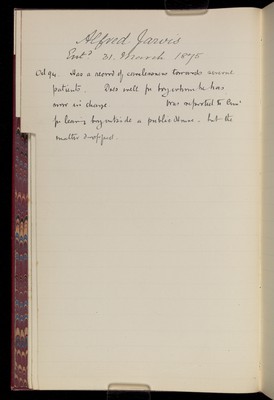 Alfred Jarvis
Entd 31. March 1875
Oct 94. Has a record of carelessness towards several
patients. Does well for boy whom he has
now in charge. Was reported to Comee
for leaving boy outside a public House - but the
matter dropped.